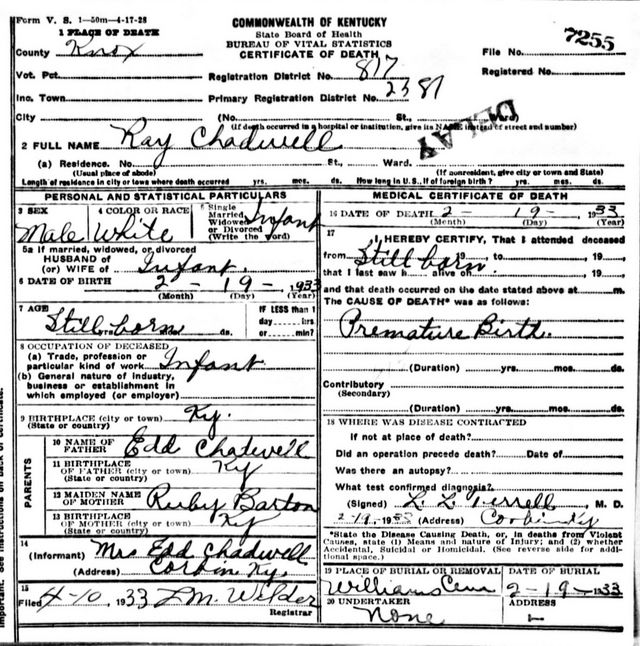 Form V. S. 1—50m—4-17-28
COMMONWEALTH OF KENTUCKY
State Board of Health
BUREAU OF VITAL STATISTICS
CERTIFICATE OF DEATH
1 PLACE OF DEATH
County Knox
File No. 7255
Vot. Pct.
Registration District No. 817
Registered No.
Inc. Town
Primary Registration District No. 2381
City (No. St., Ward)
(If death occurred in a hospital or institution, give its NAME instead of street and number)
DELAY
2 FULL NAME Ray Chadwell
(a) Residence. No. St., Ward.
(Usual place of abode) (If nonresident, give city or town and State)
Length of residence in city or town where death occurred yrs. mos. ds. How long in U. S., if of foreign birth? yrs. mos. ds.
PERSONAL AND STATISTICAL PARTICULARS
3 SEX Male
4 COLOR OR RACE White
5 Single Married Widowed or Divorced (Write the word) Infant
5a If married, widowed, or divorced
HUSBAND of
(or) WIFE of Infant.
6 DATE OF BIRTH 2 - 19 - 1933
(Month) (Day) (Year)
7 AGE Still born
yrs. mos. ds.
IF LESS than 1 day hrs or min?
8 OCCUPATION OF DECEASED
(a) Trade, profession or particular kind of work Infant
(b) General nature of Industry, business or establishment in which employed (or employer)
9 BIRTHPLACE (city or town) Ky.
(State or country)
PARENTS
10 NAME OF FATHER Edd Chadwell
11 BIRTHPLACE OF FATHER (city or town) Ky
(State or country)
12 MAIDEN NAME OF MOTHER Ruby Barton
13 BIRTHPLACE OF MOTHER (city or town) Ky
(State or country)
14
(Informant) Mrs Edd Chadwell
(Address) Corbin Ky.
15
Filed 4-10, 1933 Wilder
Registrar
MEDICAL CERTIFICATE OF DEATH
16 DATE OF DEATH 2- 19 - 1933
(Month) (Day) (Year)
17 I HEREBY CERTIFY, That I attended deceased
from Still born 19 , to , 19
that I last saw h alive on , 19
and that death occurred on the date stated above at m.
The CAUSE OF DEATH* was as follows:
Premature Birth.
(Duration) yrs. mos. ds.
Contributory
(Secondary)
(Duration) yrs. mos. ds.
18 WHERE WAS DISEASE CONTRACTED
If not at place of death?
Did an operation precede death? Date of
Was there an autopsy?
What test confirmed diagnosis?
(Signed) L. L. Terrell, M. D.
2-19, 1933 (Address) Corbin Ky
*State the Disease Causing Death, or, in deaths from Violent
Causes, state (1) Means and nature of Injury; and (2) whether
Accidental, Suicidal or Homicidal. (See reverse side for addi-
tional space.)
19 PLACE OF BURIAL OR REMOVAL Williams Cem
DATE OF BURIAL 2-19-1933
20 UNDERTAKER None
ADDRESS
important. See instructions on back of certificate.